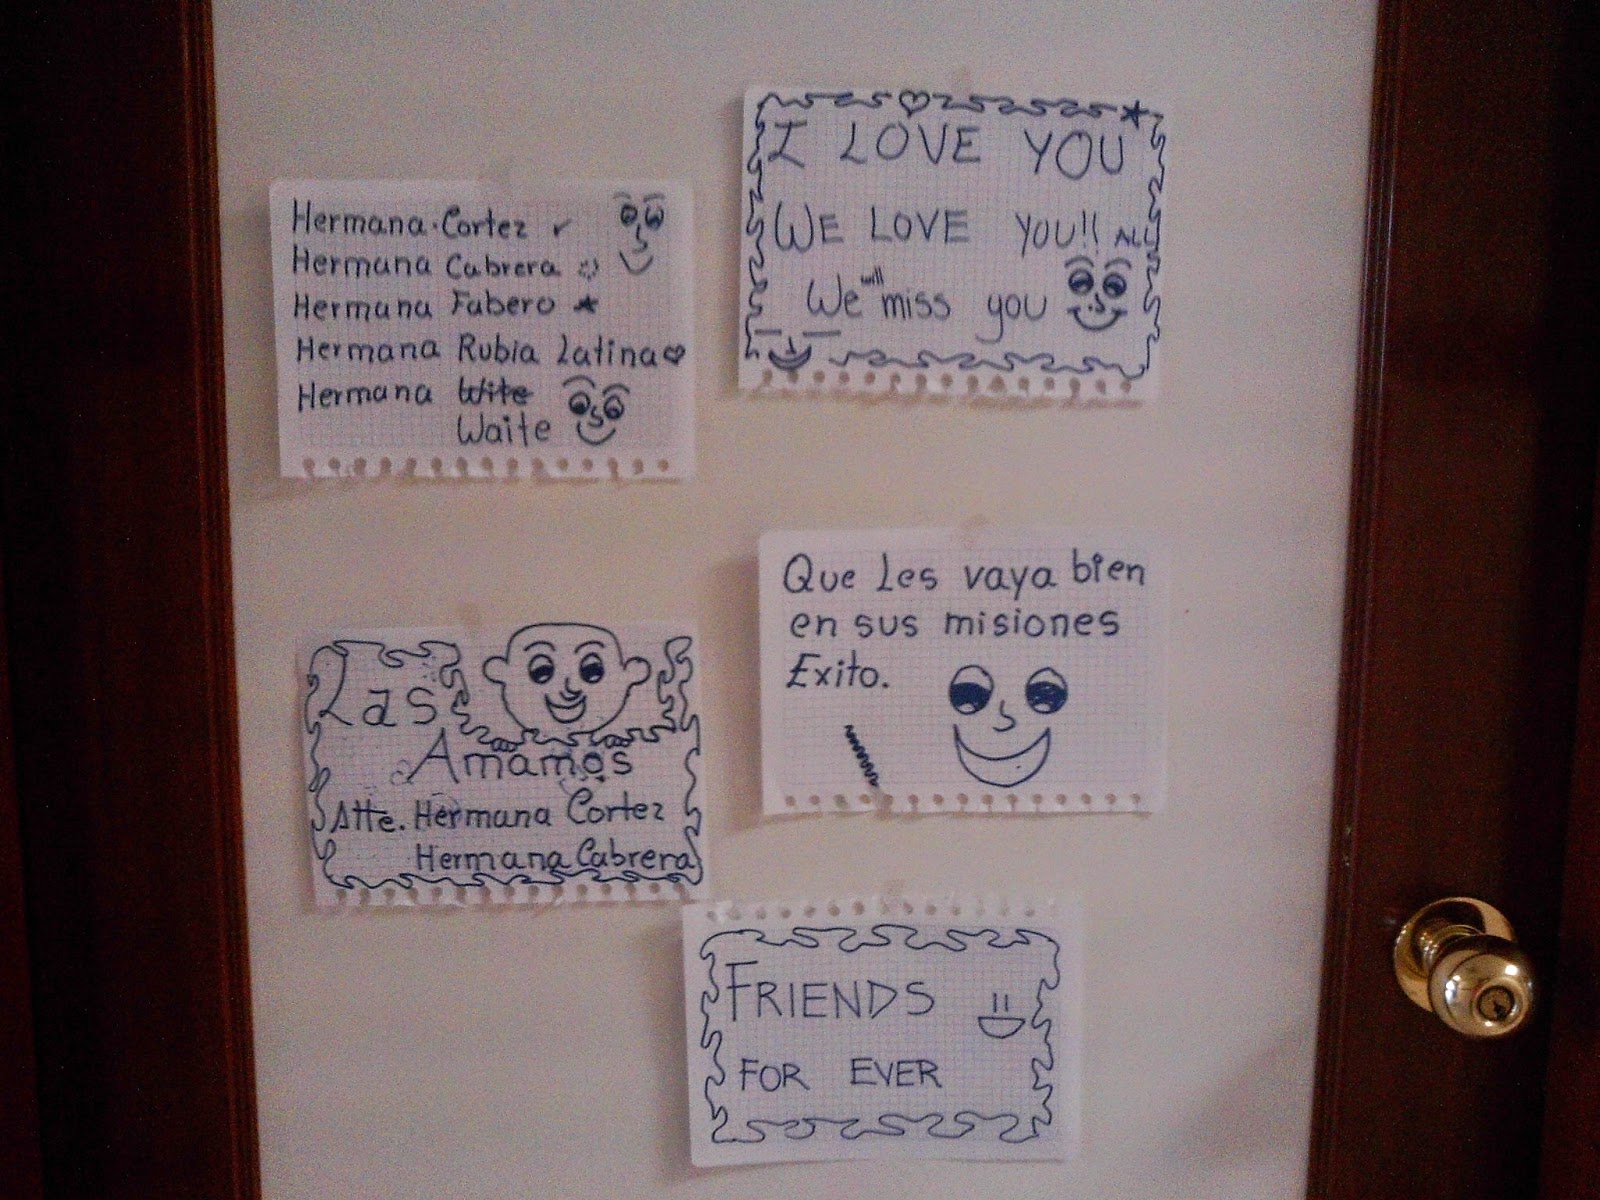 Hermana Cortez
Hermana Cabrera :)
Hermana Fabero
Hermana Rubia Latina
Hermana Wite
Waite
I LOVE YOU
WE LOVE YOU!! ALL
We will miss you
Las
Amamos
Atte. Hermana Cortez
Hermana Cabrera
Que Les vaya bien
en sus misiones
Exito.
FRIENDS
FOR EVER